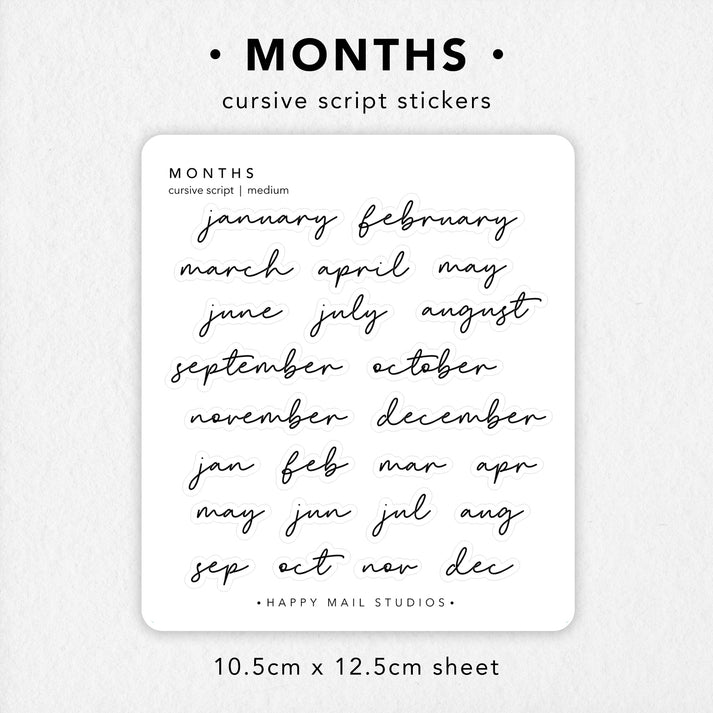 • MONTHS •
cursive script stickers
MONTHS
cursive script | medium
january february
march april may
june july august
september october
november december
jan feb mar apr
may jun jul aug
sep oct nov dec
• HAPPY MAIL STUDIOS •
10.5cm x 12.5cm sheet